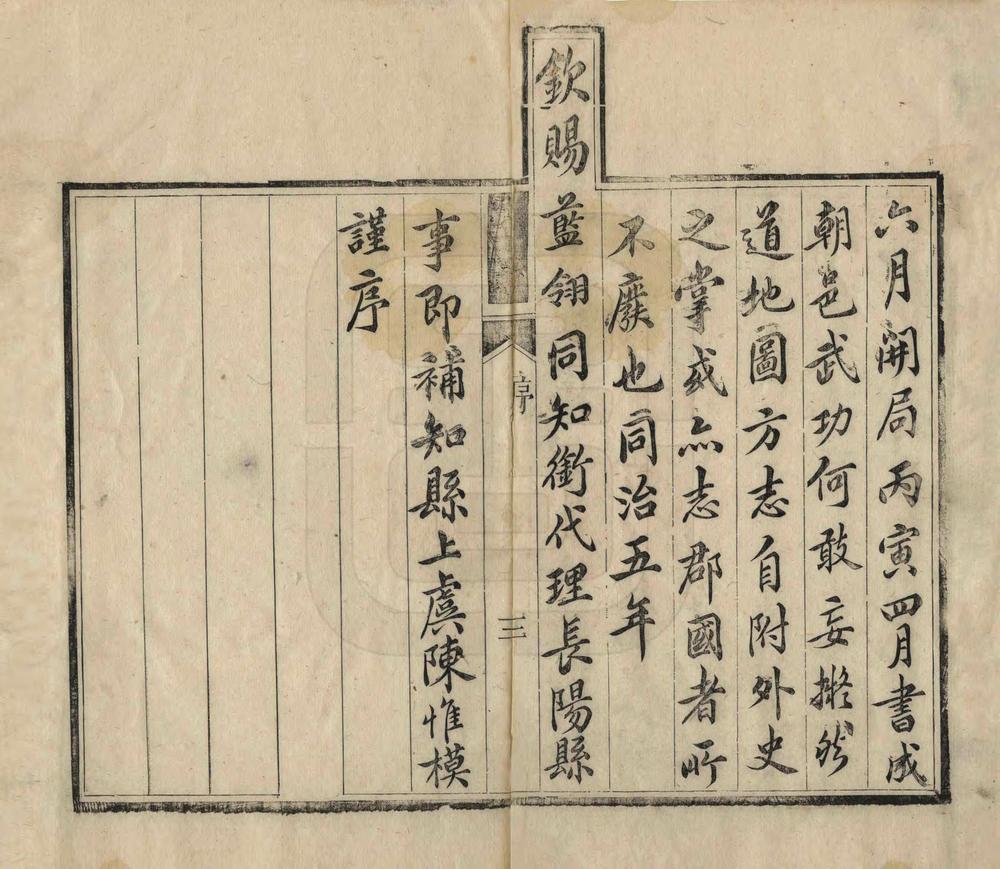 六月開局丙寅四月書成
朝邑武功何敢妄擬然
道地圖方志自附外史
之掌或亦志郡國者所
不廢也同治五年
欽賜藍翎同知銜代理長陽縣
序
三
事即補知縣上虞陳惟模
謹序